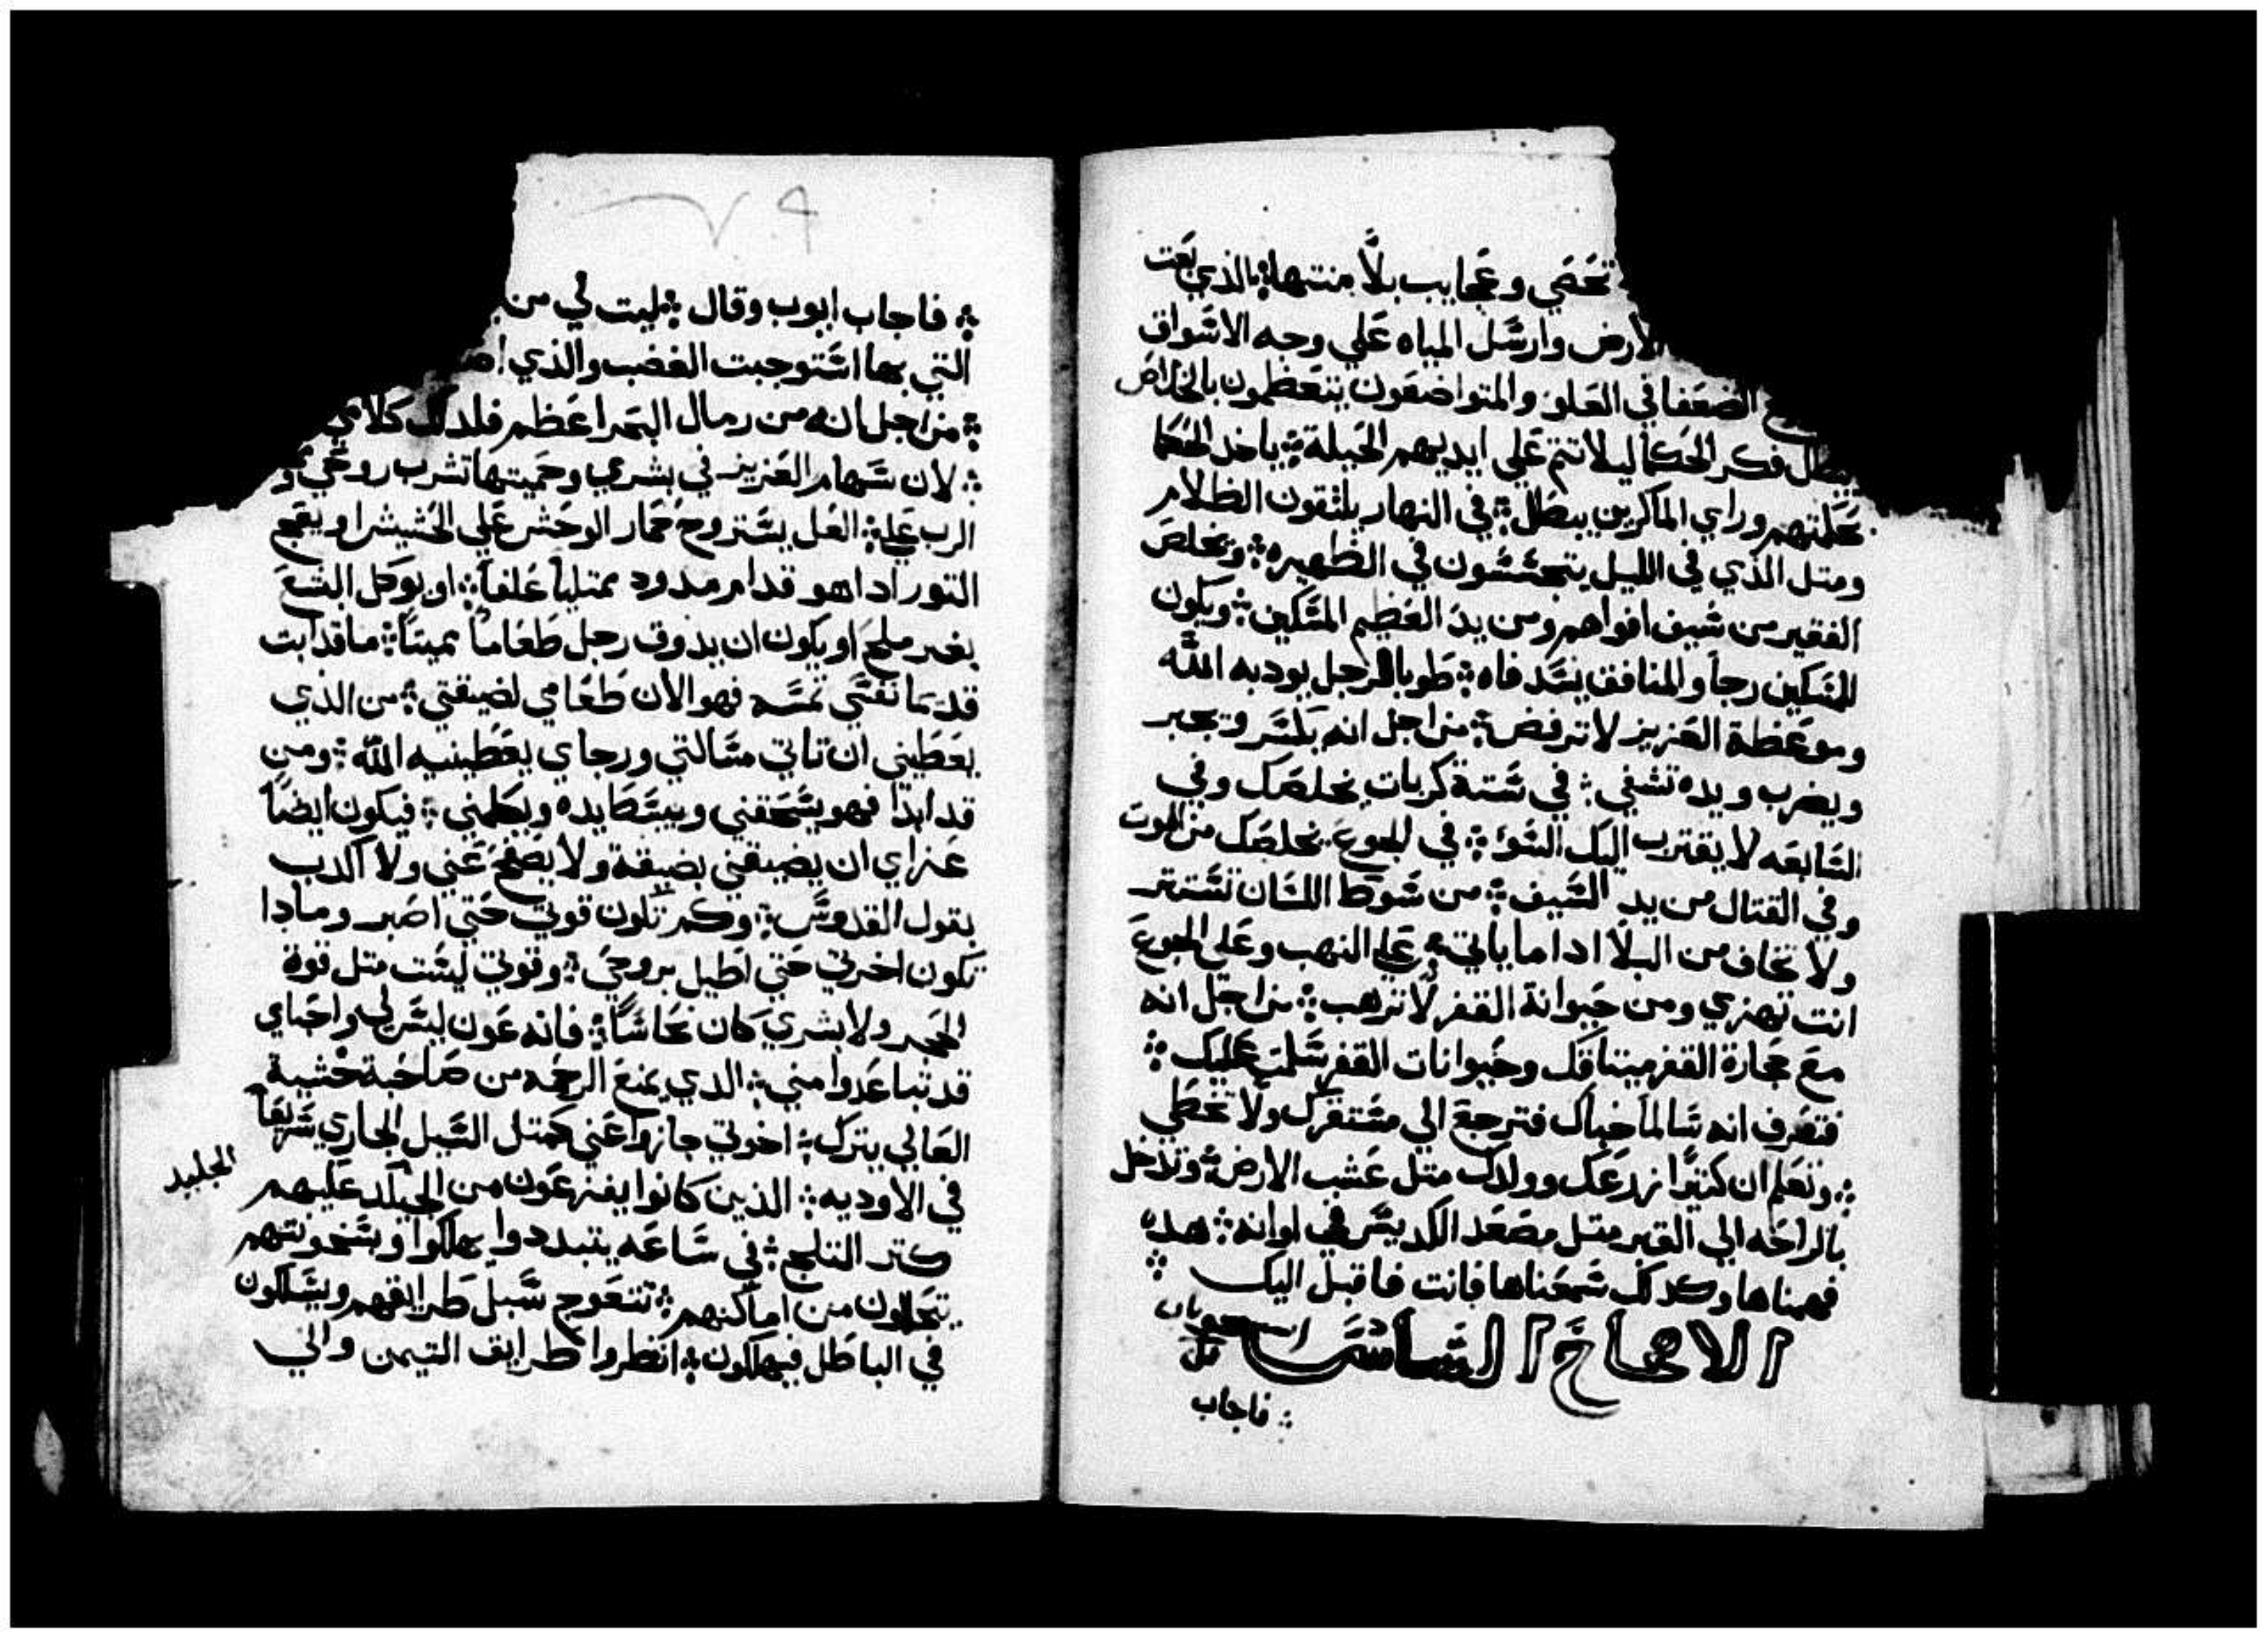 تحصي وعجايب بلا منتها ܀ الذي بعت
الأرض وارسل المياه علي وجه الاسواق
الضعفا في العلو والمتواضعون يتعظمون بالخلاص
يبطل فكر الحكما ليلا تتم علي ايديهم الحيلة ܀ ياخد الحكما
بحكمتهم وراي الماكرين يبطل ܀ في النهار يلتقون الظلام
ومتل الذي في الليل يتجسسون في الظهيره ܀ ويخلص
الفقير من سيف افواههم ومن يد العظيم المسكين ܀ ويكون
للمسكين رجا والمنافق يسد فاه ܀ طوبا للرجل يودبه الله
وموعظة العزيز لا ترفض ܀ من اجل انه يكسر ويجبر
ويضرب ويده تشفي ܀ في ستة كربات يخلصك وفي
السابعه لا يقترب اليك السو ܀ في الجوع يخلصك من الموت
وفي القتال من يد السيف ܀ من سوط اللسان تستتر
ولا تخاف من البلا ادا ما ياتي ܀ علي النهب وعلي الجوع
انت تهزي ومن حيوانة القفر لا ترهب ܀ من اجل انه
مع حجارة القفر ميتاقك وحيوانات القفر سلمت عليك ܀
فتعرف انه سالما خباك فترجع الي مستقرك ولا تخطي
܀ وتعلم ان كتيرا زرعك وولدك متل عشب الارض ܀ وتدخل
بالراحه الي القبر متل مصعد الكديس في اوانه ܀ هده
فهمناها وكدلك سمعناها فانت فاقبل اليك ܀
الاصحاح السادس
܀ فاجاب
٧٩
܀ فاجاب ايوب وقال ܀ ليت لي من
التي بها استوجبت الغضب والذي
܀ من اجل انه من رمال البحر اعظم فلدلك كلامي
܀ لان سهام العزيز في بشري وحميتها تشرب روحي
الرب علي ܀ العل يستروح حمار الوحش علي الحشيش او يفجع
التور ادا هو قدام مدود ممتليا علفا ܀ او يوكل الشع
بغير ملح او يكون ان يدوق رجل طعاما مميتا ܀ ما قد ابت
قديما نفسي تمسه فهو الان طعامي لضيقتي ܀ من الذي
يعطيني ان تاتي مسالتي ورجاي يعطينيه الله ܀ ومن
قد ابدا فهو يسحقني ويبسط ايده ويكلمني ܀ فيكون ايضا
عزاي ان يضيقني بضيقة ولا يصفح عني ولا اكدب
بقول القدوس ܀ وكم تكون قوتي حتي اصبر ومادا
تكون اخرتي حتي اطيل بروحي ܀ وقوتي ليست متل قوة
الحجر ولا بشري كان نحاسا ܀ فانه عون ليس لي واحباي
قد تباعدوا مني ܀ الدي يمنع الرحمه من صاحبه خشية
العالي يترك ܀ اخوتي جازوا عني كمتل السيل الجاري سريعا
في الاوديه ܀ الذين كانوا يفزعون من الجليد عليهم
الجليد
كتر التلج ܀ في ساعه يتبددوا يهلكوا وبسخونتهم
ينحلون من اماكنهم ܀ تتعوج سبل طرايقهم ويسلكون
في الباطل فيهلكون ܀ انظروا طرايق التيمن والي